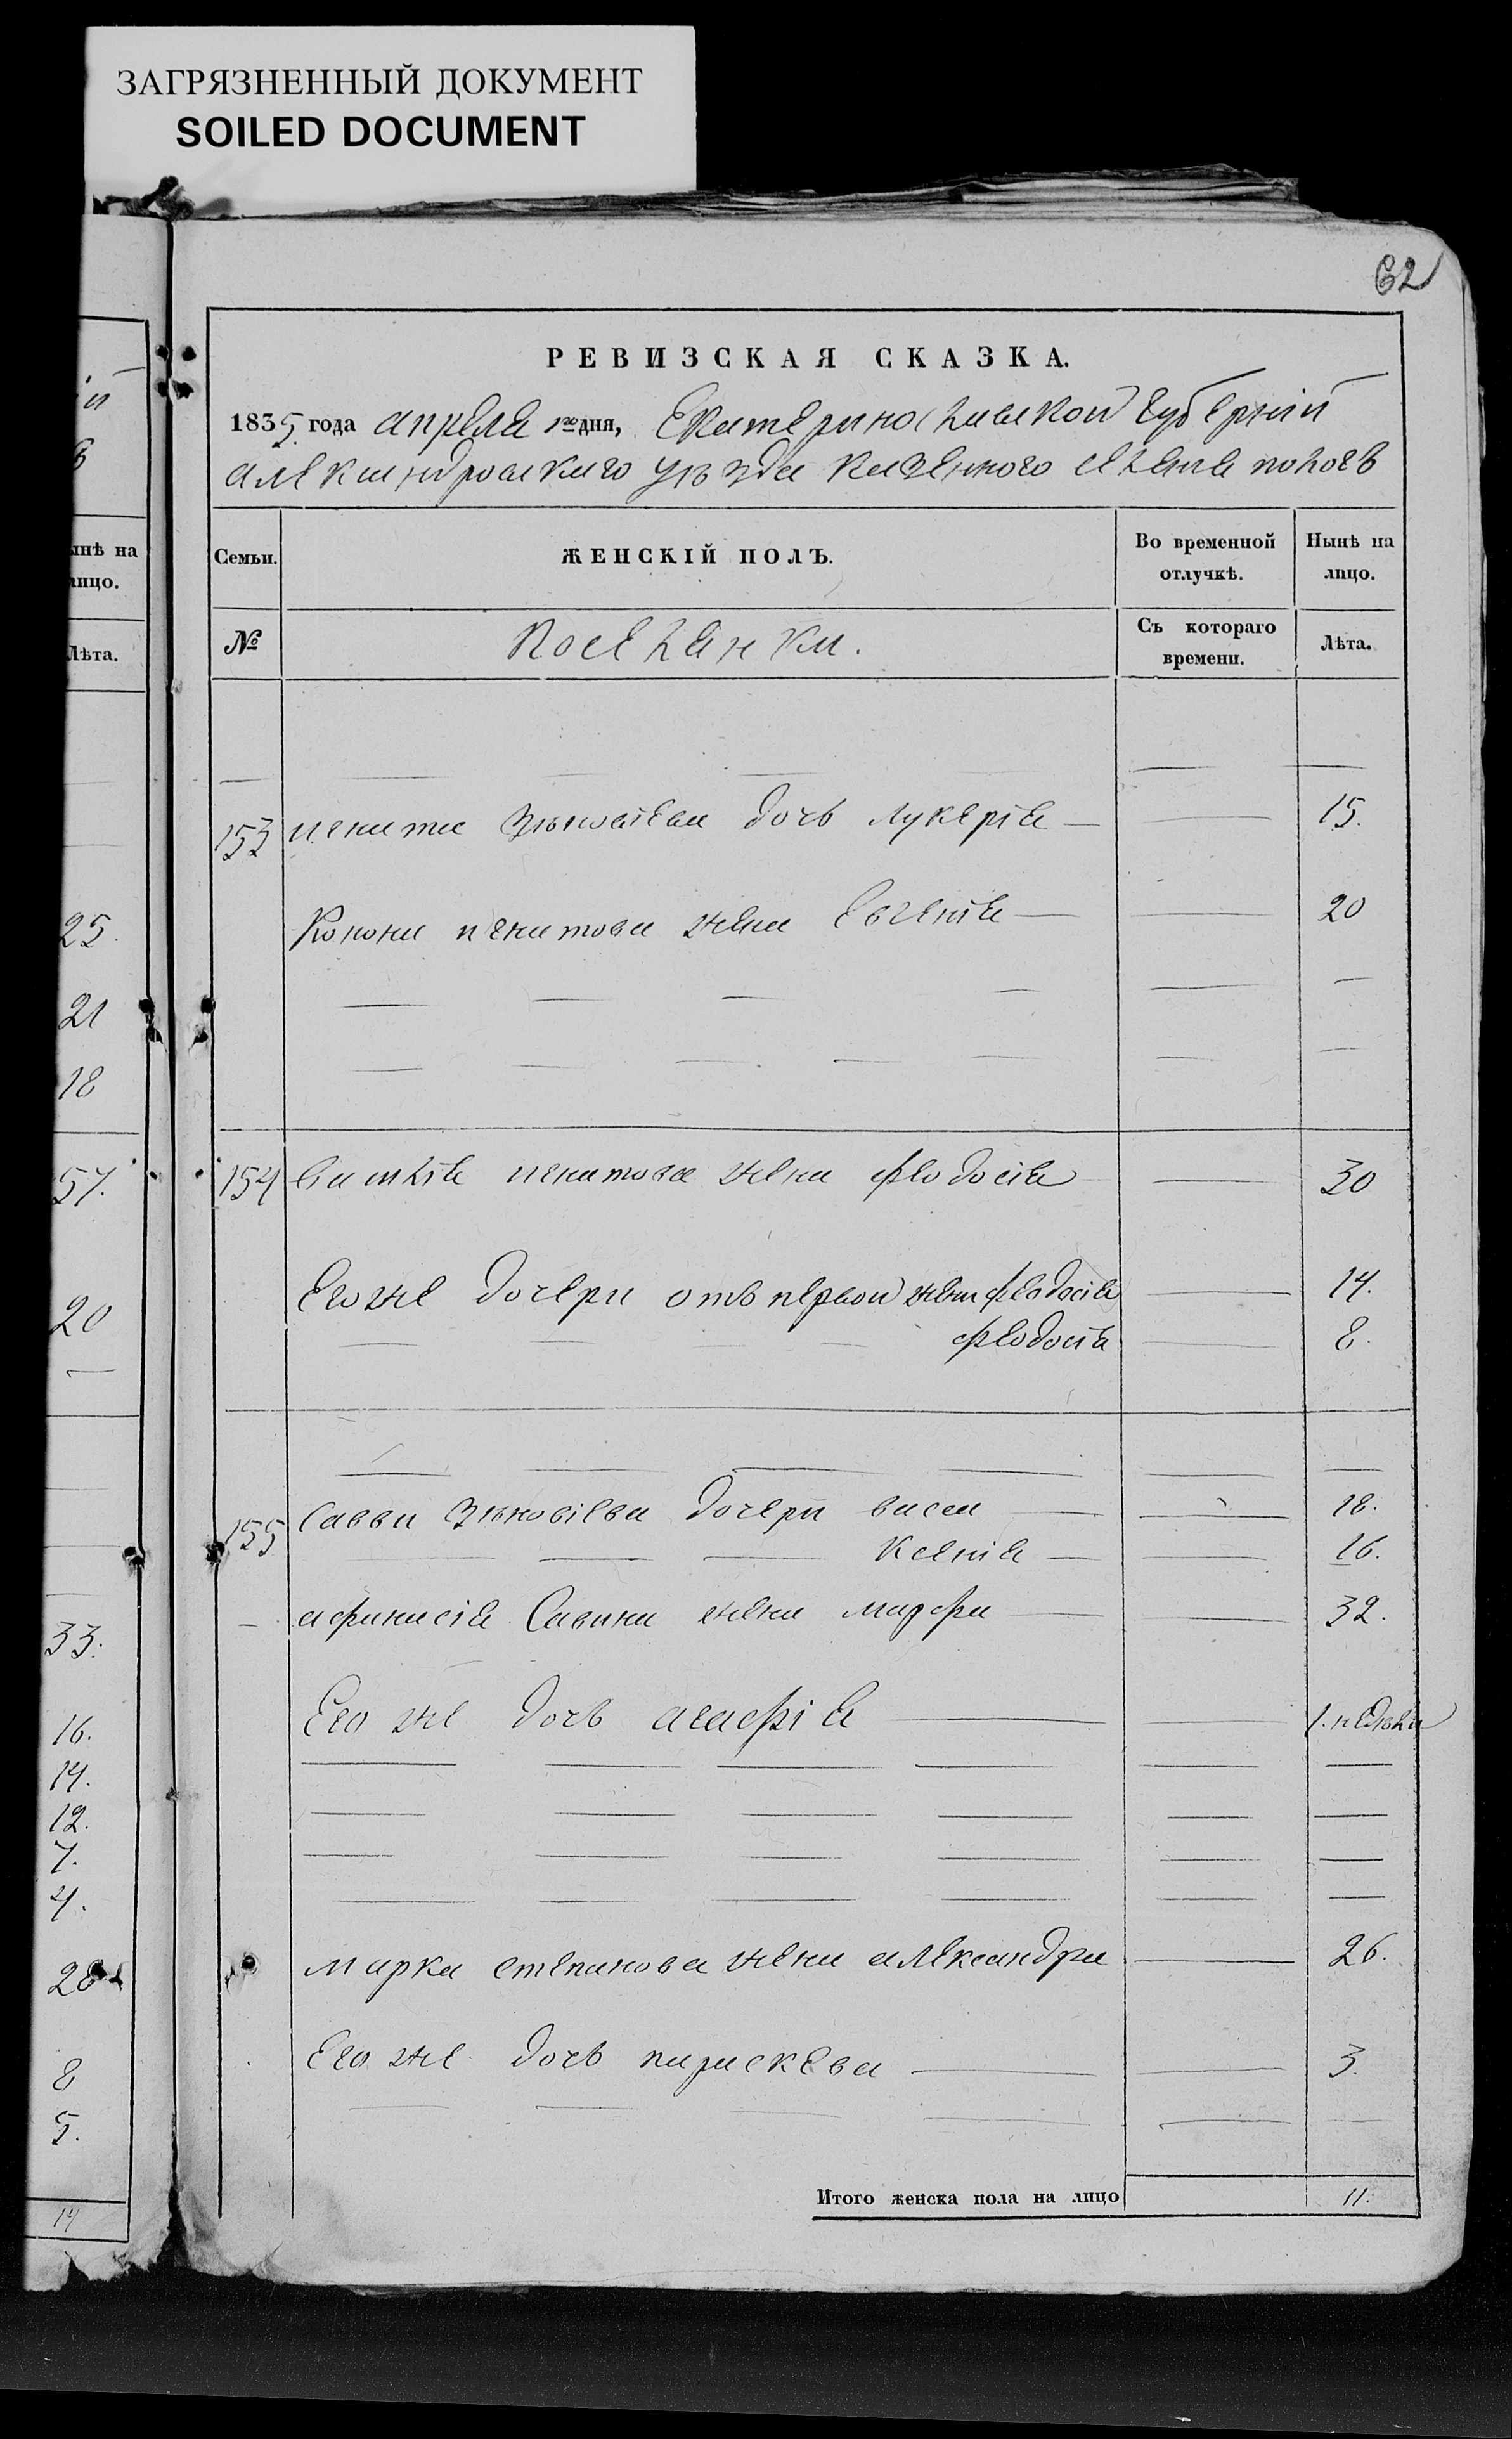 ЗАГРЯЗНЕННЫЙ ДОКУМЕНТ
SOILED DOCUMENT
62
РЕВИЗСКАЯ СКАЗКА.
1835 года апреля 1го дня, Екатеринославской губерніи
александровскаго уѣзда казенного селенія пологъ
Семьи. ЖЕНСКІЙ ПОЛЪ. Во временной отлучкѣ. Нынѣ на лицо.
№ Поселянки. Съ котораго времени. Лѣта.
153 игната Зѣновіева дочь лукерія — — 15.
Конона игнатова жена Евгенія — — 20
154 виталія игнатова жена феодосія — 30
Его же дочери отъ первой жены феодосія — 14.
феодосія — 8.
155 Саввы Зѣновіева дочери васса — — 18.
Ксенія — — 16.
афанасія Савина жена марфа — — 32.
Его же дочь агафія — — 1. недѣля
марка степанова жена александра — 26.
Его же дочь параскева — — 3.
Итого женска пола на лицо 11.
нѣ на
лицо.
Лѣта.
25.
21
18
57.
20
33.
16.
14.
12.
7.
4.
28
8
5.
14